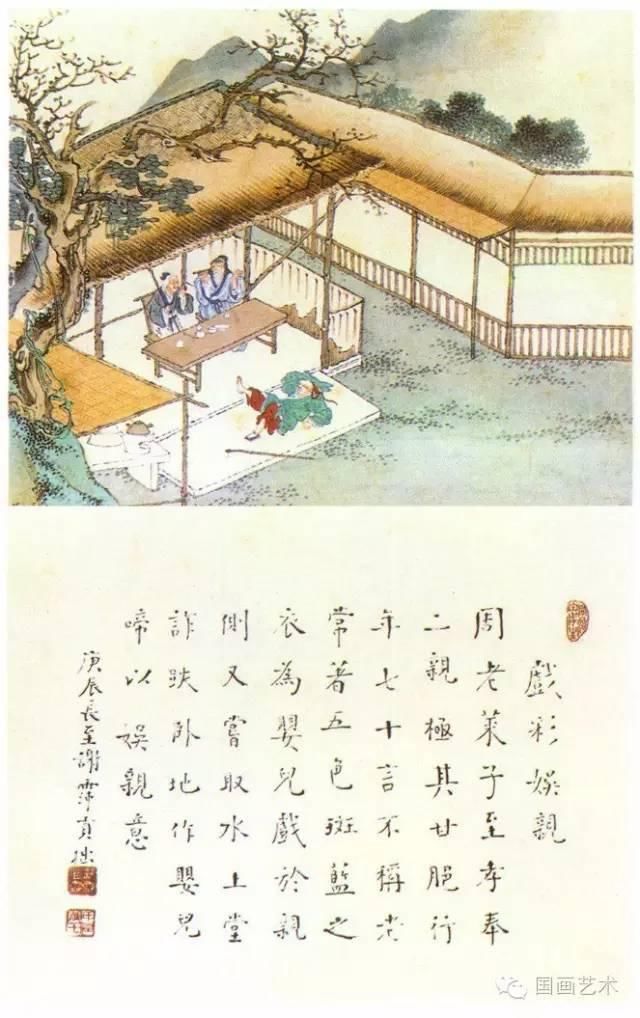 戲彩娛親
周老萊子至孝奉
二親極其甘脃行
年七十言不稱老
常著五色斑藍之
衣為嬰兒戲於親
側又嘗取水上堂
詐跌卧地作嬰兒
啼以娛親意
庚辰長至謝貢拙
国画艺术